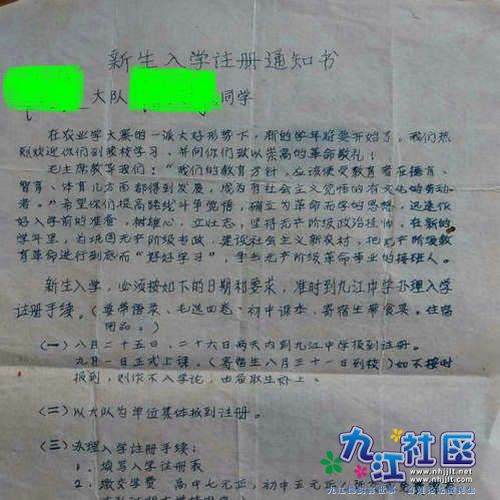 新生入学注册通知书
大队 同学
在农业学大寨的一派大好形势下，新的学年将要开始了，我们热
烈欢迎你们到我校学习，并向你们致以崇高的革命敬礼！
毛主席教导我们："我们的教育方针，应该使受教育者在德育、
智育、体育几方面都得到发展，成为有社会主义觉悟的有文化的劳动
者。"希望你们提高路线斗争觉悟，确立为革命而学的思想，迅速作
好入学前的准备，树雄心，立壮志，坚持无产阶级政治挂帅，在新的
学年里，为巩固无产阶级专政，建设社会主义新农村，把无产阶级教
育革命进行到底而"好好学习"，争当无产阶级革命事业的接班人。
新生入学，必须按如下的日期和要求，准时到九江中学办理入学
注册手续。（要带语录、毛选四卷、初中课本、寄宿生带食粮、住宿
用品。）
（一）八月二十五日、二十六日两天内到九江中学报到注册。
九月一日正式上课。（寄宿生八月三十一日到校）如不按时
报到，则作不入学论，由备取生补上。
（二）以大队为单位集体报到注册。
（三）办理入学注册手续：
1．填写入学注册表
2．缴交学费 高中七元正，初中五元正
九江社区